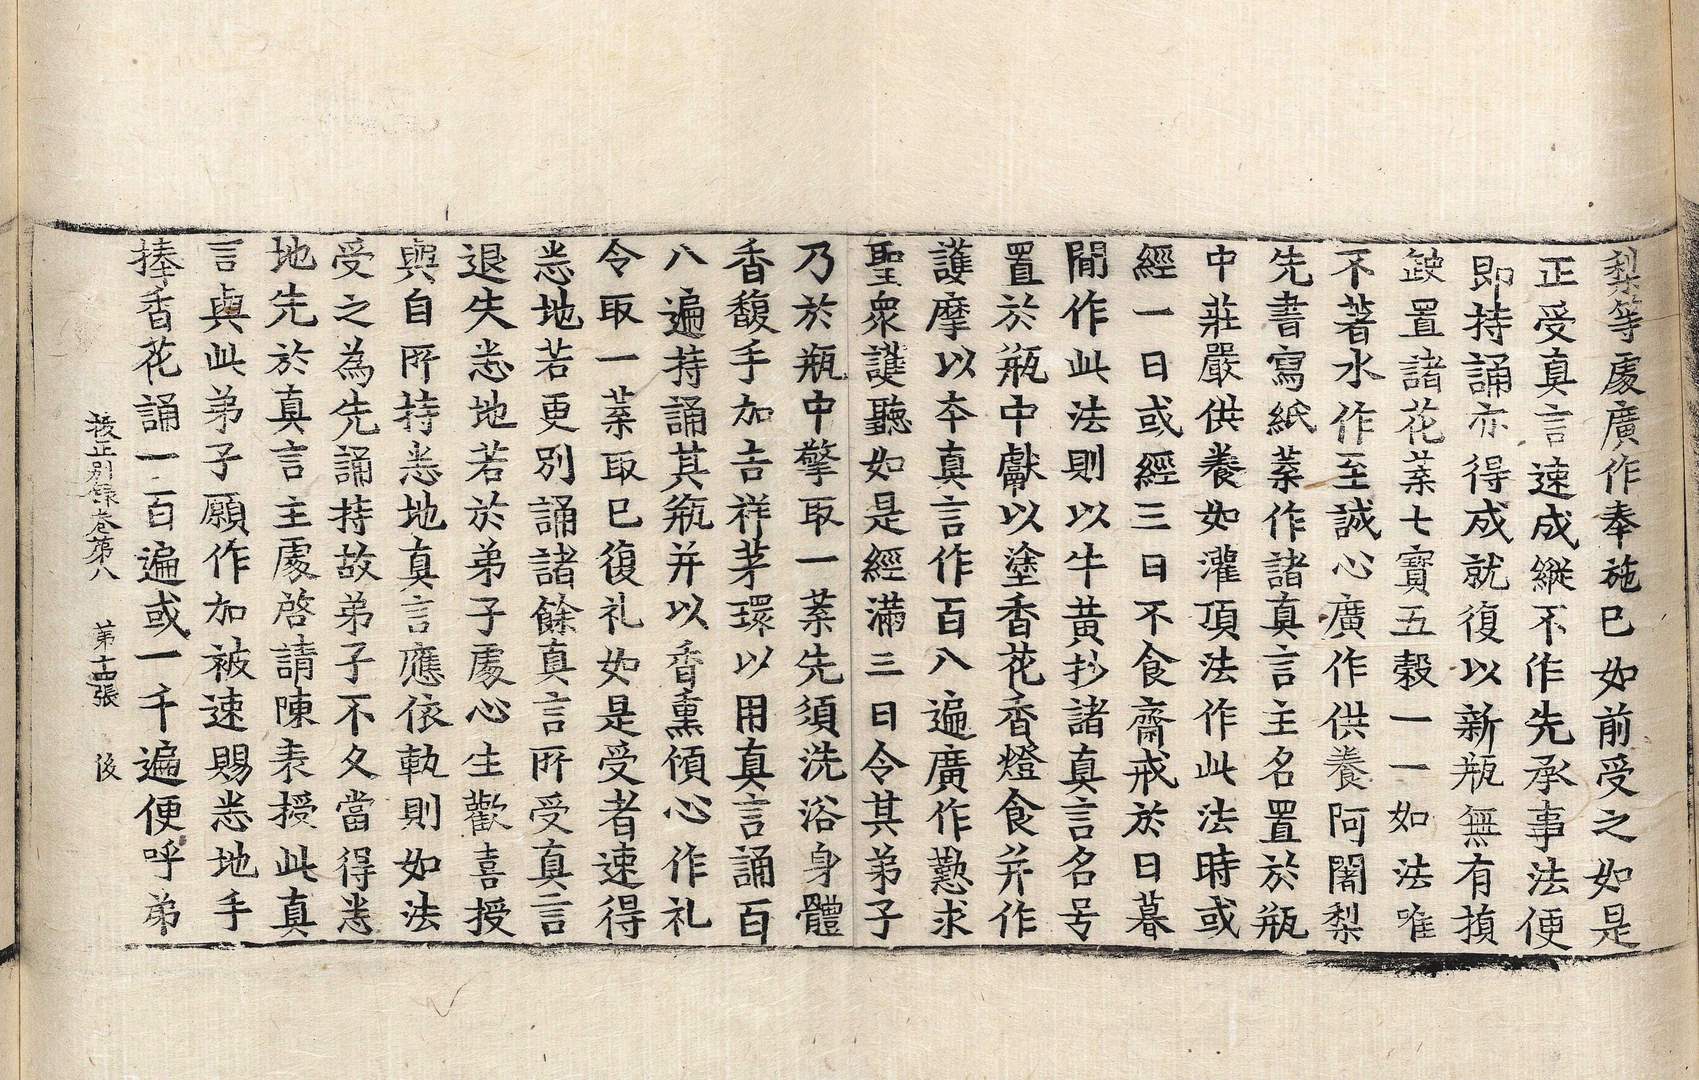 梨等處廣作奉施已如前受之如是
正受真言速成縱不作先承事法便
即持誦亦得成就復以新瓶無有損
缺置諸花葉七寶五穀一一如法唯
不著水作至誠心廣作供養阿闍梨
先書寫紙葉作諸真言主名置於瓶
中莊嚴供養如灌頂法作此法時或
經一日或經三日不食齋戒於日暮
閒作此法則以牛黃抄諸真言名号
置於瓶中獻以塗香花香燈食并作
護摩以本真言作百八遍廣作懃求
聖衆護聽如是經滿三日令其弟子
乃於瓶中擎取一葉先須洗浴身體
香馥手加吉祥茅環以用真言誦百
八遍持誦其瓶并以香熏傾心作礼
令取一葉取已復礼如是受者速得
悉地若更別誦諸餘真言所受真言
退失悉地若於弟子處心生歡喜授
與自所持悉地真言應依軌則如法
受之為先誦持故弟子不久當得悉
地先於真言主處啓請陳表授此真
言與此弟子願作加被速賜悉地手
捧香花誦一百遍或一千遍便呼弟
挍正別錄卷第八 第十四張 俊